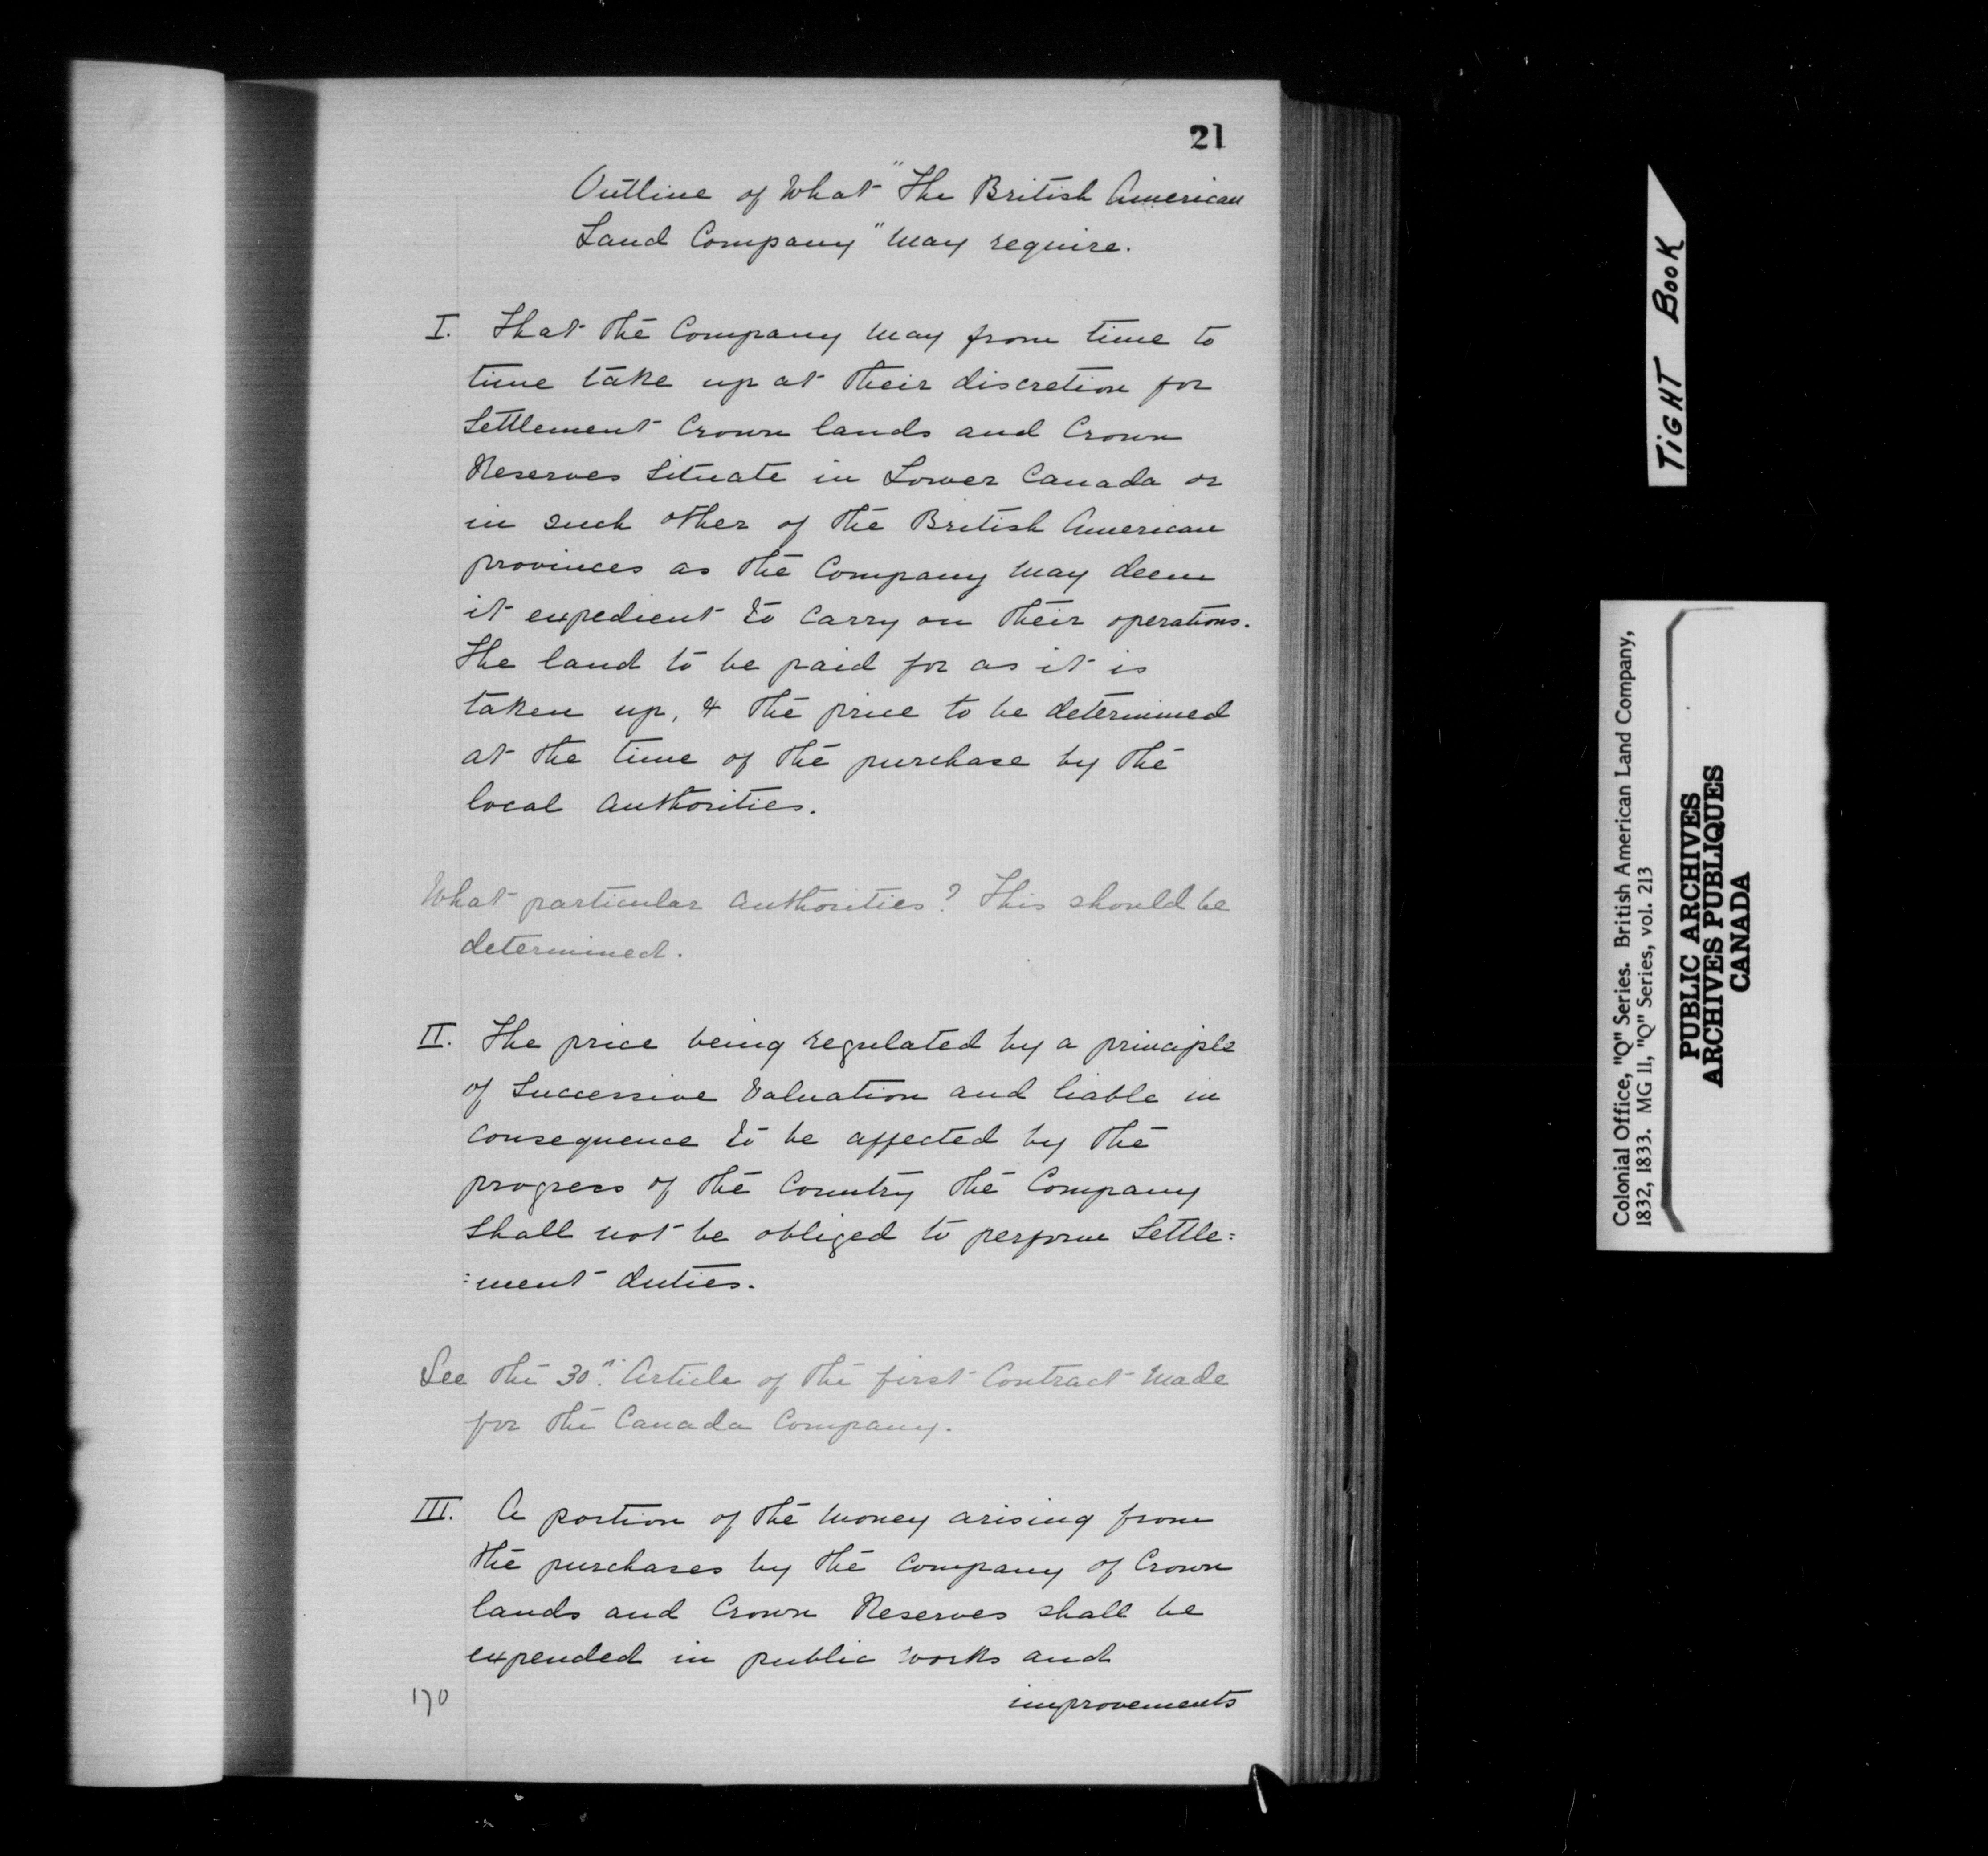 21
Outline of What "The British American
Land Company" May require.
I. That the Company may from time to
time take up at their discretion for
Settlement Crown lands and Crown
Reserves Situate in Lower Canada or
in such other of the British American
provinces as the Company may deem
it expedient to Carry on their operations.
The land to be paid for as it is
taken up, & the price to be determined
at the time of the purchase by the
local authorities.
What particular authorities? This should be
determined.
II. The price being regulated by a principle
of Successive Valuation and liable in
consequence to be affected by the
progress of the Country the Company
Shall not be obliged to perform Settle=
=ment duties.
See the 30th. Article of the first Contract Made
for the Canada Company.
III. A portion of the Money arising from
the purchases by the Company of Crown
lands and Crown Reserves shall be
expended in public works and
improvements
170
TiGHT BooK
Colonial Office, "Q" Series. British American Land Company,
1832, 1833. MG 11, "Q" Series, vol. 213
PUBLIC ARCHIVES
ARCHIVES PUBLIQUES
CANADA